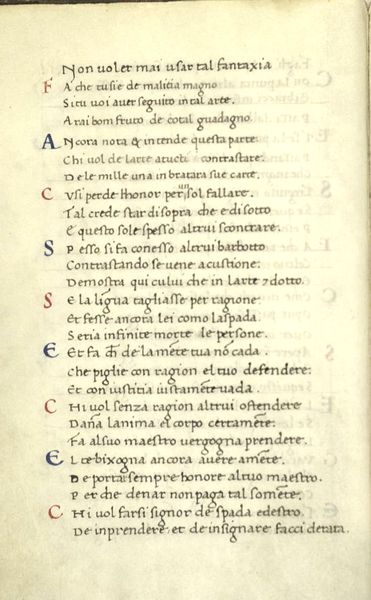 Non voler mai usar tal fantaxia
FA che tu sie de malitia magno
Si tu voi aver seguito in tal arte.
Arai bom fruto de cotal guadagno.
ANcora nota & intende questa parte.
Chi vol de larte a tucti contrastare.
De le mille una inbratara sue carte.
CUsi perde lhonor per un sol fallare.
Tal crede star di sopra che e di sotto
E questo sole spesso altrui scontrare.
SPesso si fa con esso altrui barbotto
Contrastando se vene a custione:
Demostra qui cului che in larte è dotto.
SE la ligua tagliasse per ragione:
Et fesse ancora lei como la spada.
Seria infinite morte le persone.
Et fa ch̄ de la mēte tua nō cada.
Che piglie con ragion el tuo defendere:
Et con iustitia iustamēte vada.
CHi vol senza ragion altrui offendere
Dāna lanima el corpo certamēte.
Fa al suo maestro vergogna prendere.
EL te bixogna ancora avere amēte.
De portar sempre honore al tuo maestro.
Per che denar non paga tal somēte.
CHi vol farsi signor de spada e destro
De inprendere et de insignare facci derata.